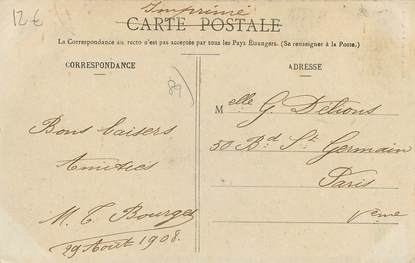 12€
Imprimé
CARTE POSTALE
La Correspondance au recto n'est pas acceptée par tous les Pays Étrangers. (Se renseigner à la Poste.)
CORRESPONDANCE
89
Bons baisers
Amitiés
M. T. Bourges
29 Aout 1908.
ADRESSE
Melle G. Détions
50 Bd St Germain
Paris
Vème